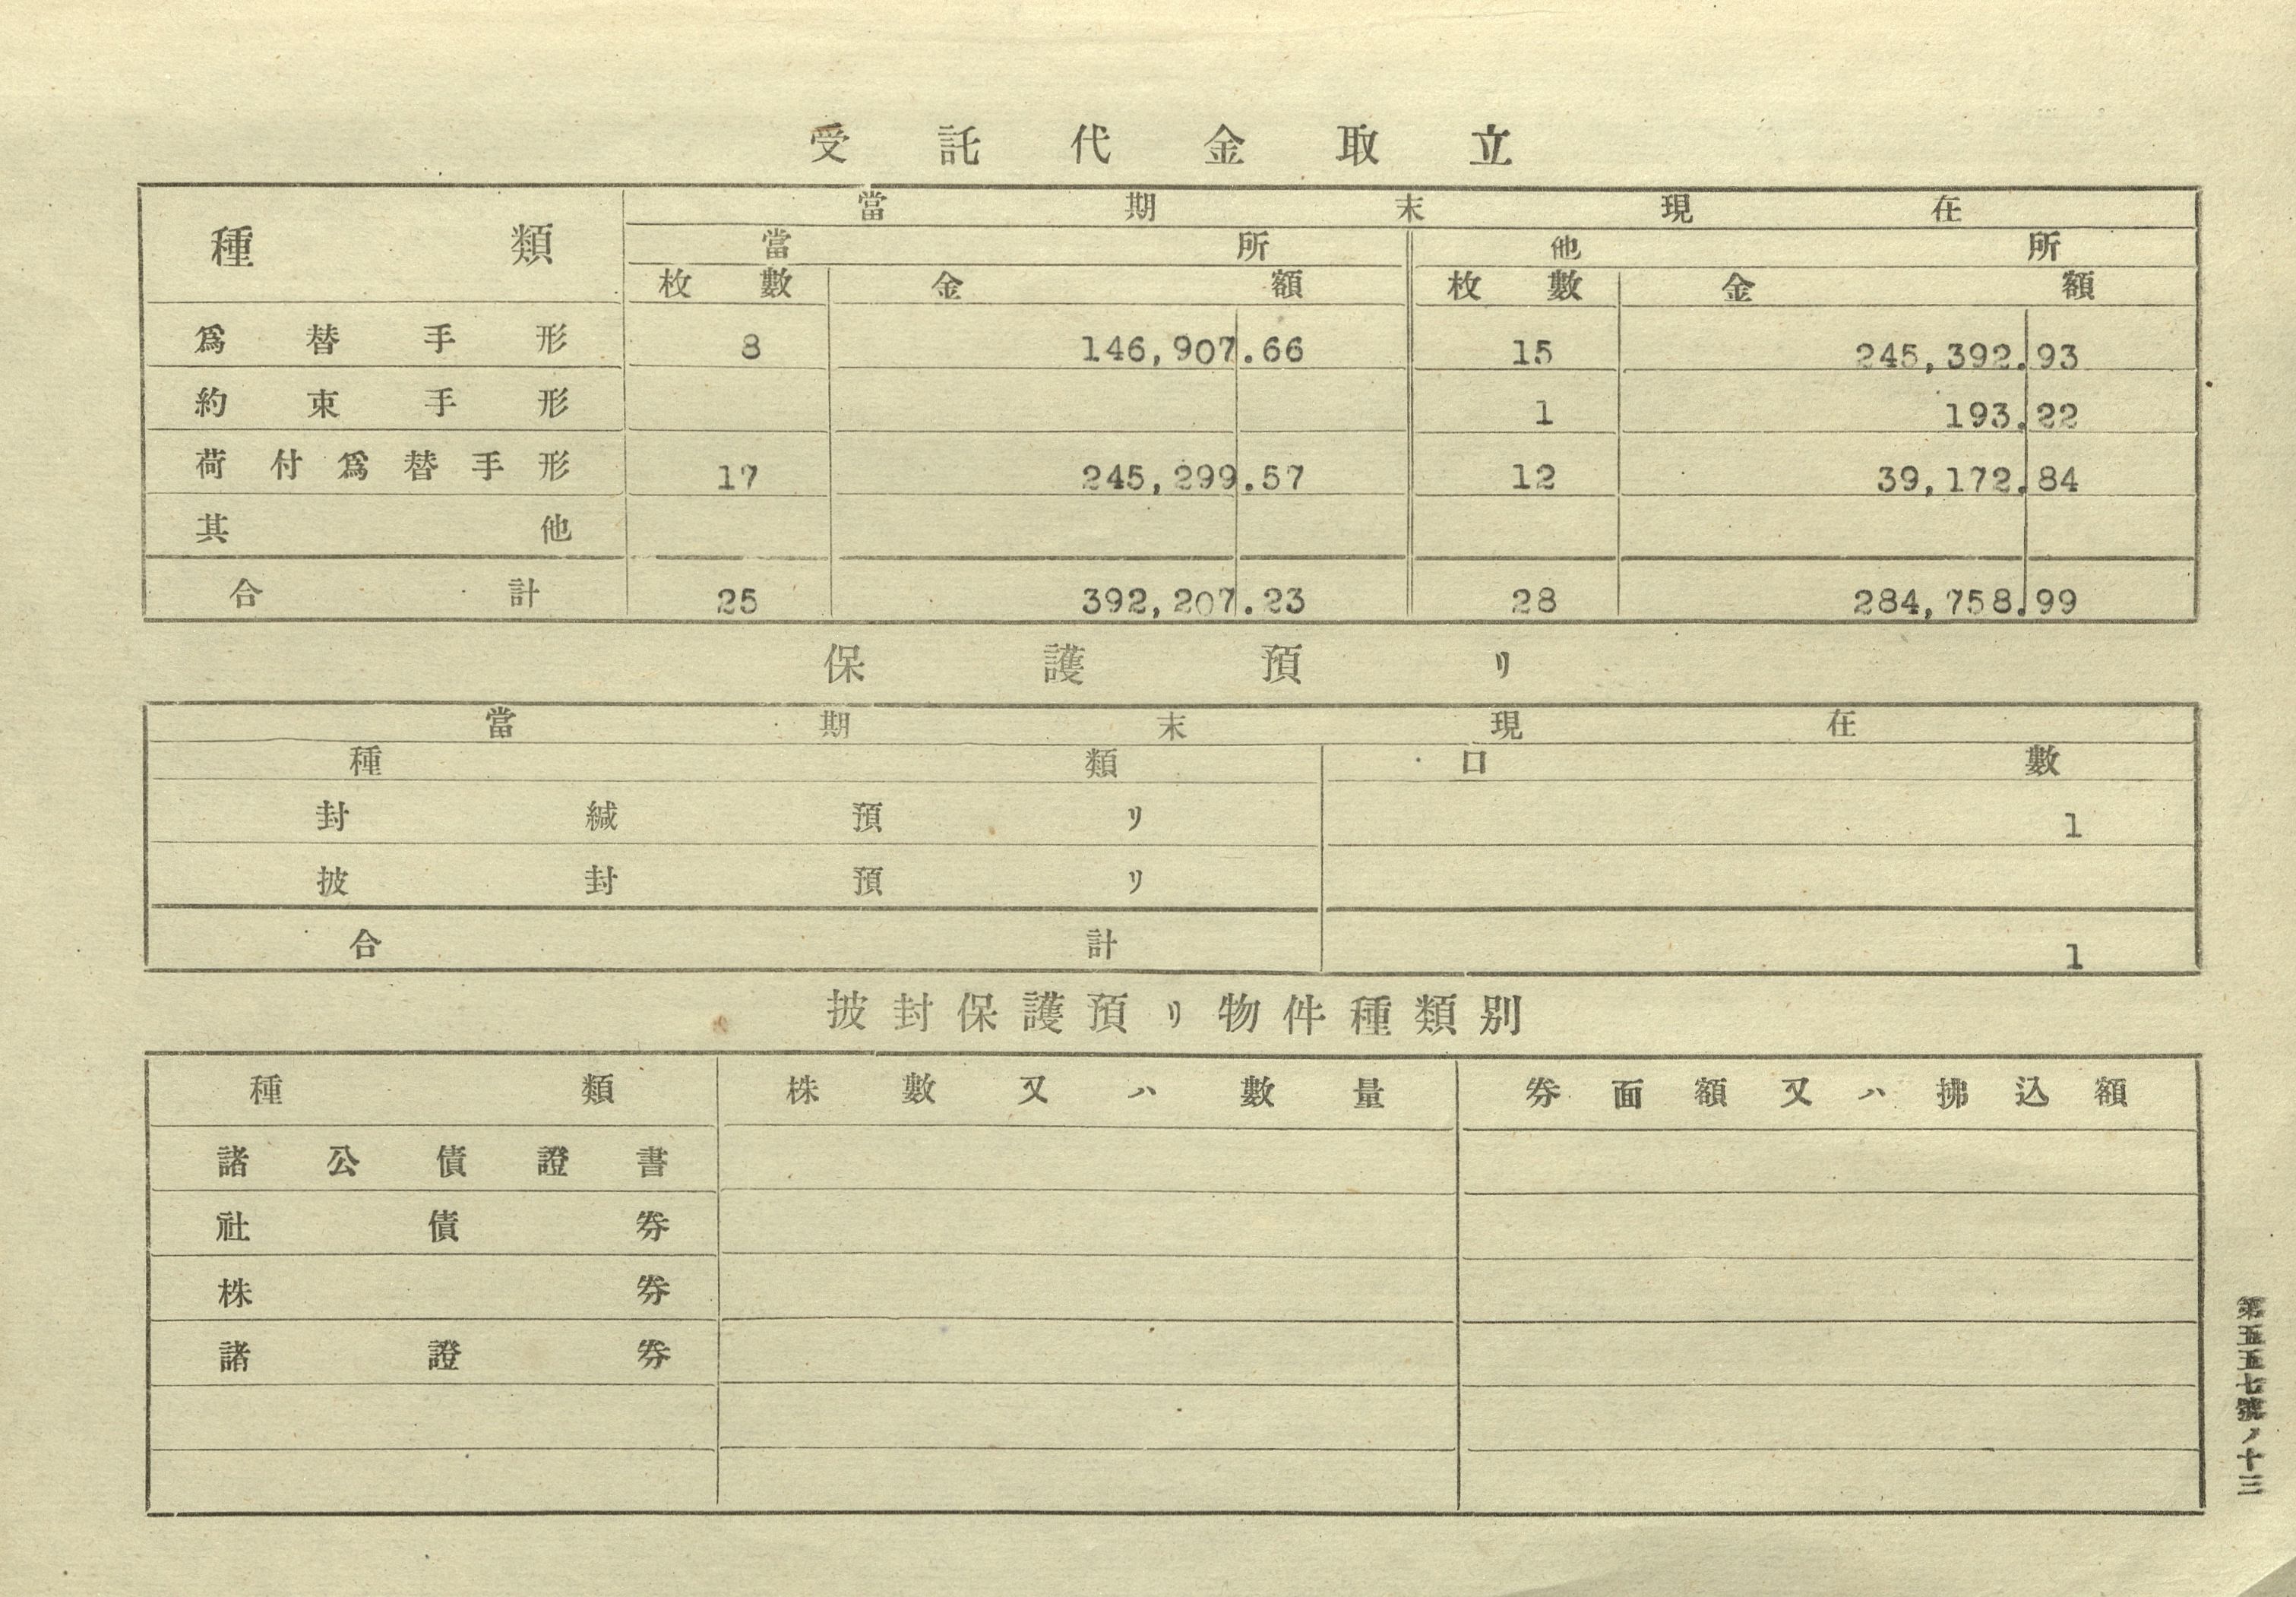 受託代金取立
種類 當期末現在
當所 他所
枚數 金額 枚數 金額
爲替手形 8 146,907.66 15 245,392.93
約束手形 1 193.22
荷付爲替手形 17 245,299.57 12 39,172.84
其他
合計 25 392,207.23 28 284,758.99
保護預リ
當期末現在
種類 口數
封緘預リ 1
披封預リ
合計 1
披封保護預リ物件種類別
種類 株數又ハ數量 券面額又ハ拂込額
諸公債證書
社債券
株券
諸證券
第五五七號ノ十三